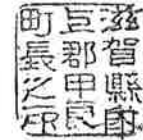 滋賀縣犬
上郡甲良
町長之印